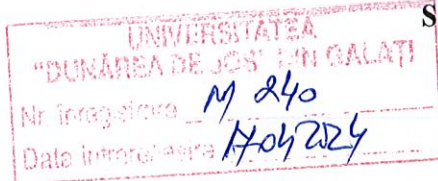 S
UNIVERSITATEA
"DUNĂREA DE JOS" DIN GALAȚI
Nr. înregistrare M 240
Data 17.04.2024